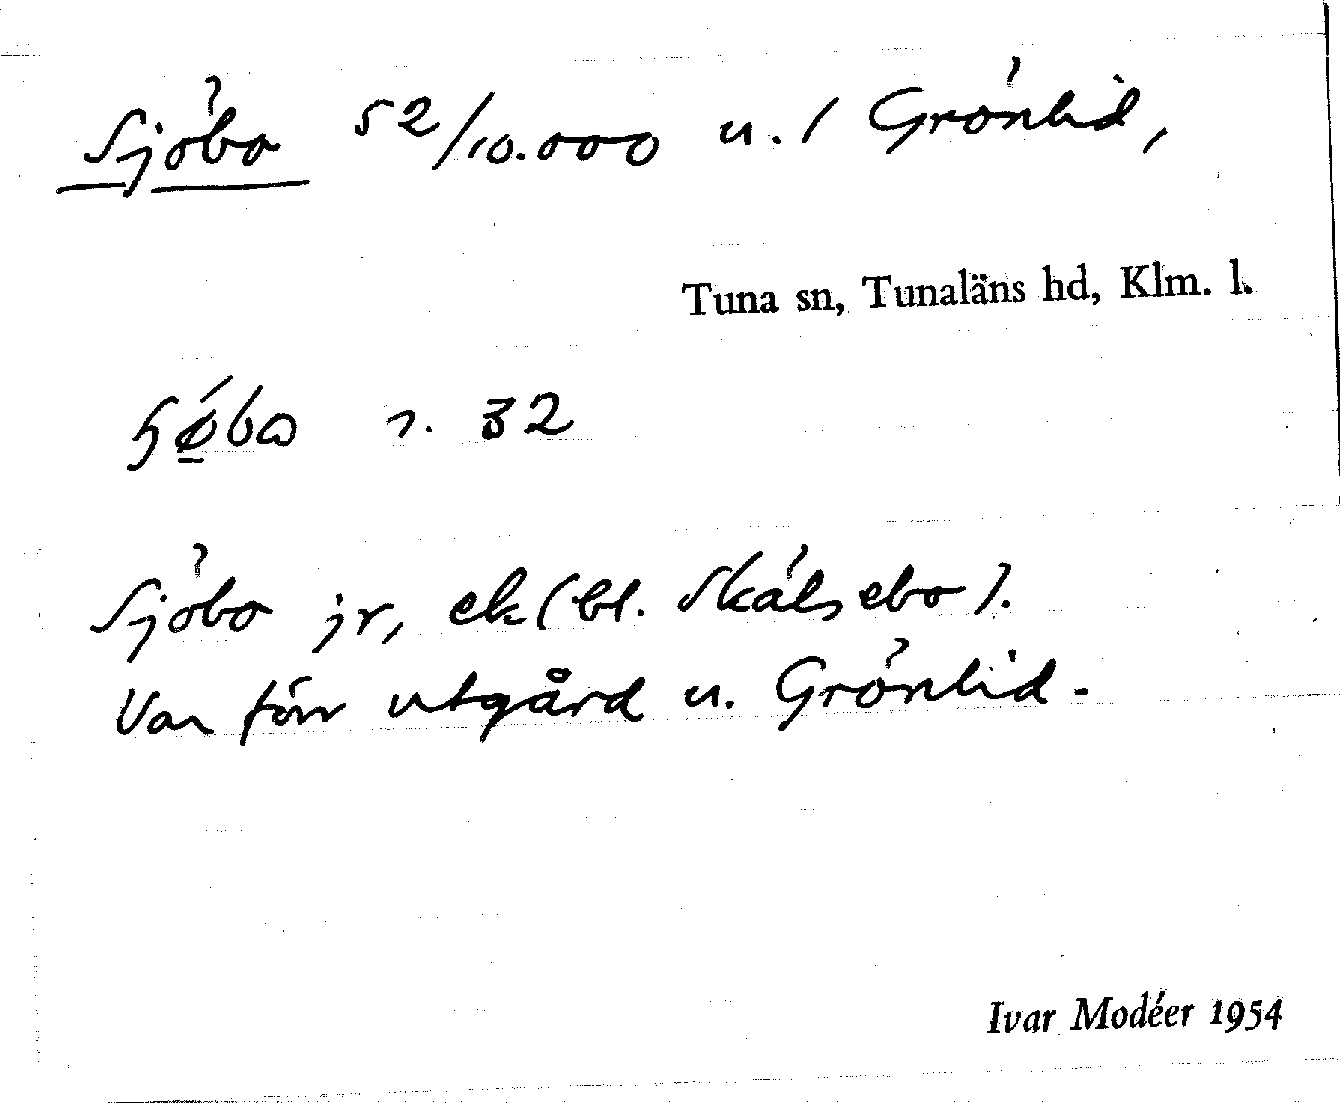 Sjöbo 52/10.000 u. 1 Grönlid,
Tuna sn, Tunaläns hd, Klm. l.
r. 32
Sjöbo jr, ek (bl. Skälsebo).
Var förr utgård u. Grönlid.
Ivar Modéer 1954